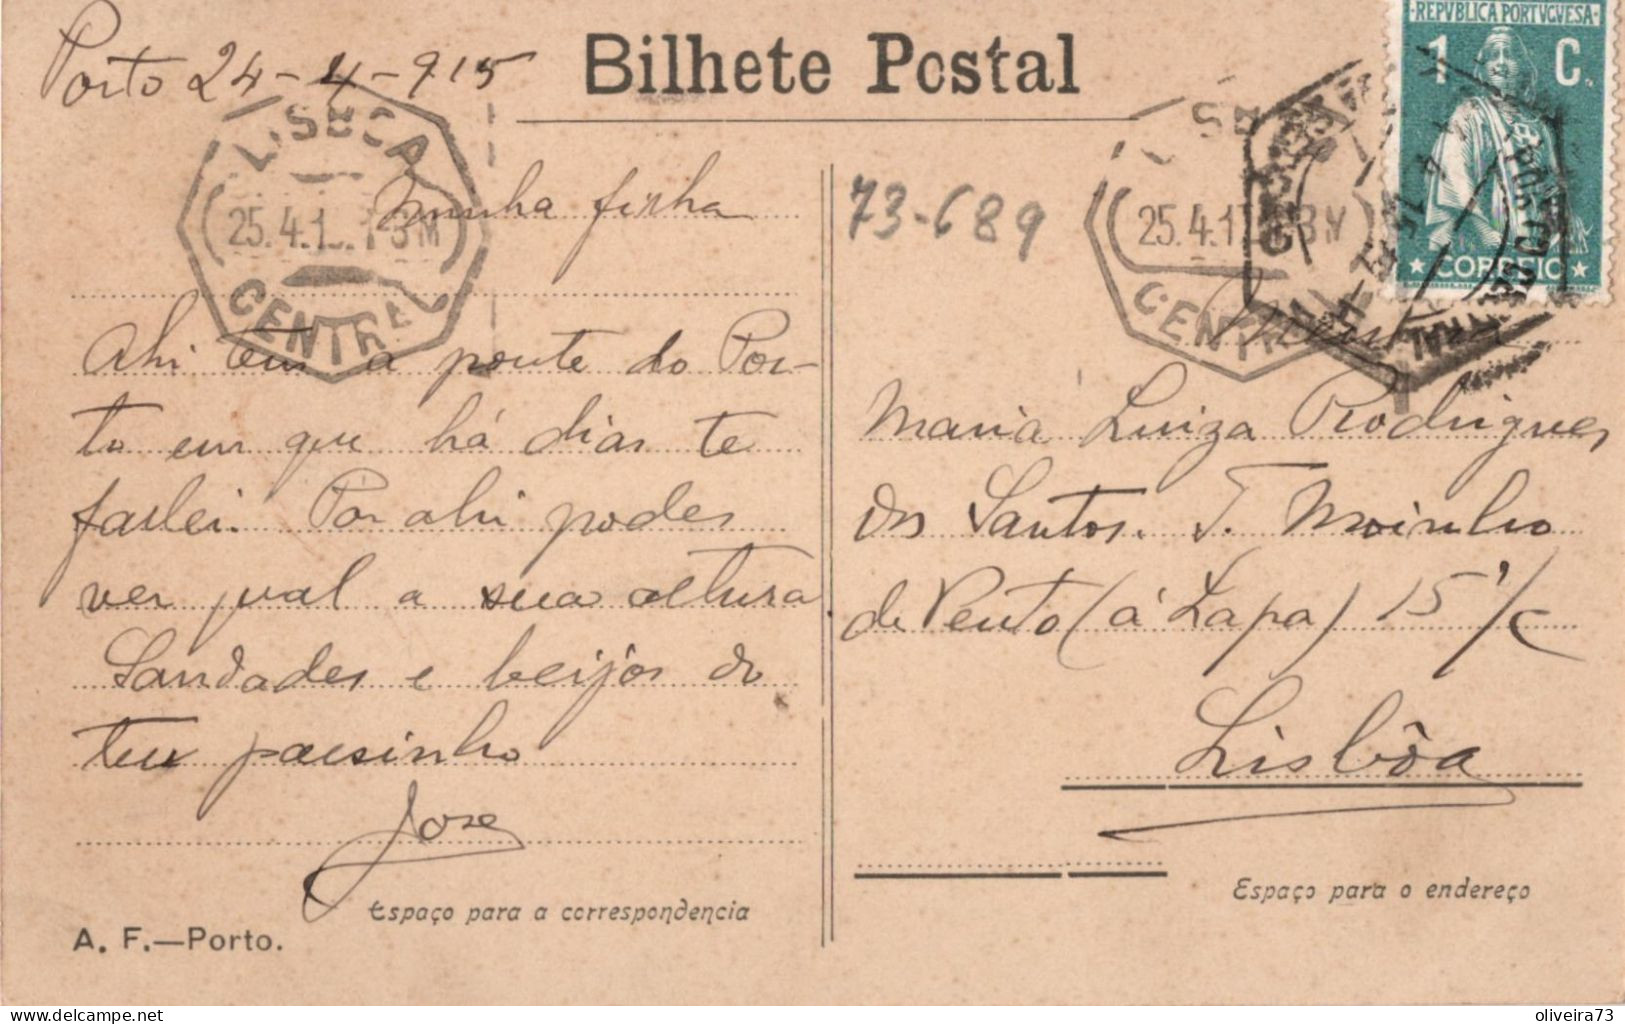 Porto 24-4-915
Bilhete Postal
REPVBLICA PORTVGVESA
1 C.
CORREIO
LISBOA
25.4.1
CENTRAL
25.4.1
CENTRAL
73-689
Minha filha
Ahi tens a ponte do Por-
to em que há dias te
fallei. Por ahi podes
ver qual a sua altura.
Saudades e beijos do
teu paesinho
José
Menina
Maria Luiza Rodrigues
dos Santos. T. Moinho
de Vento (á Lapa) 15 1º/C
Lisbôa
Espaço para a correspondencia
Espaço para o endereço
A. F.—Porto.
oliveira73